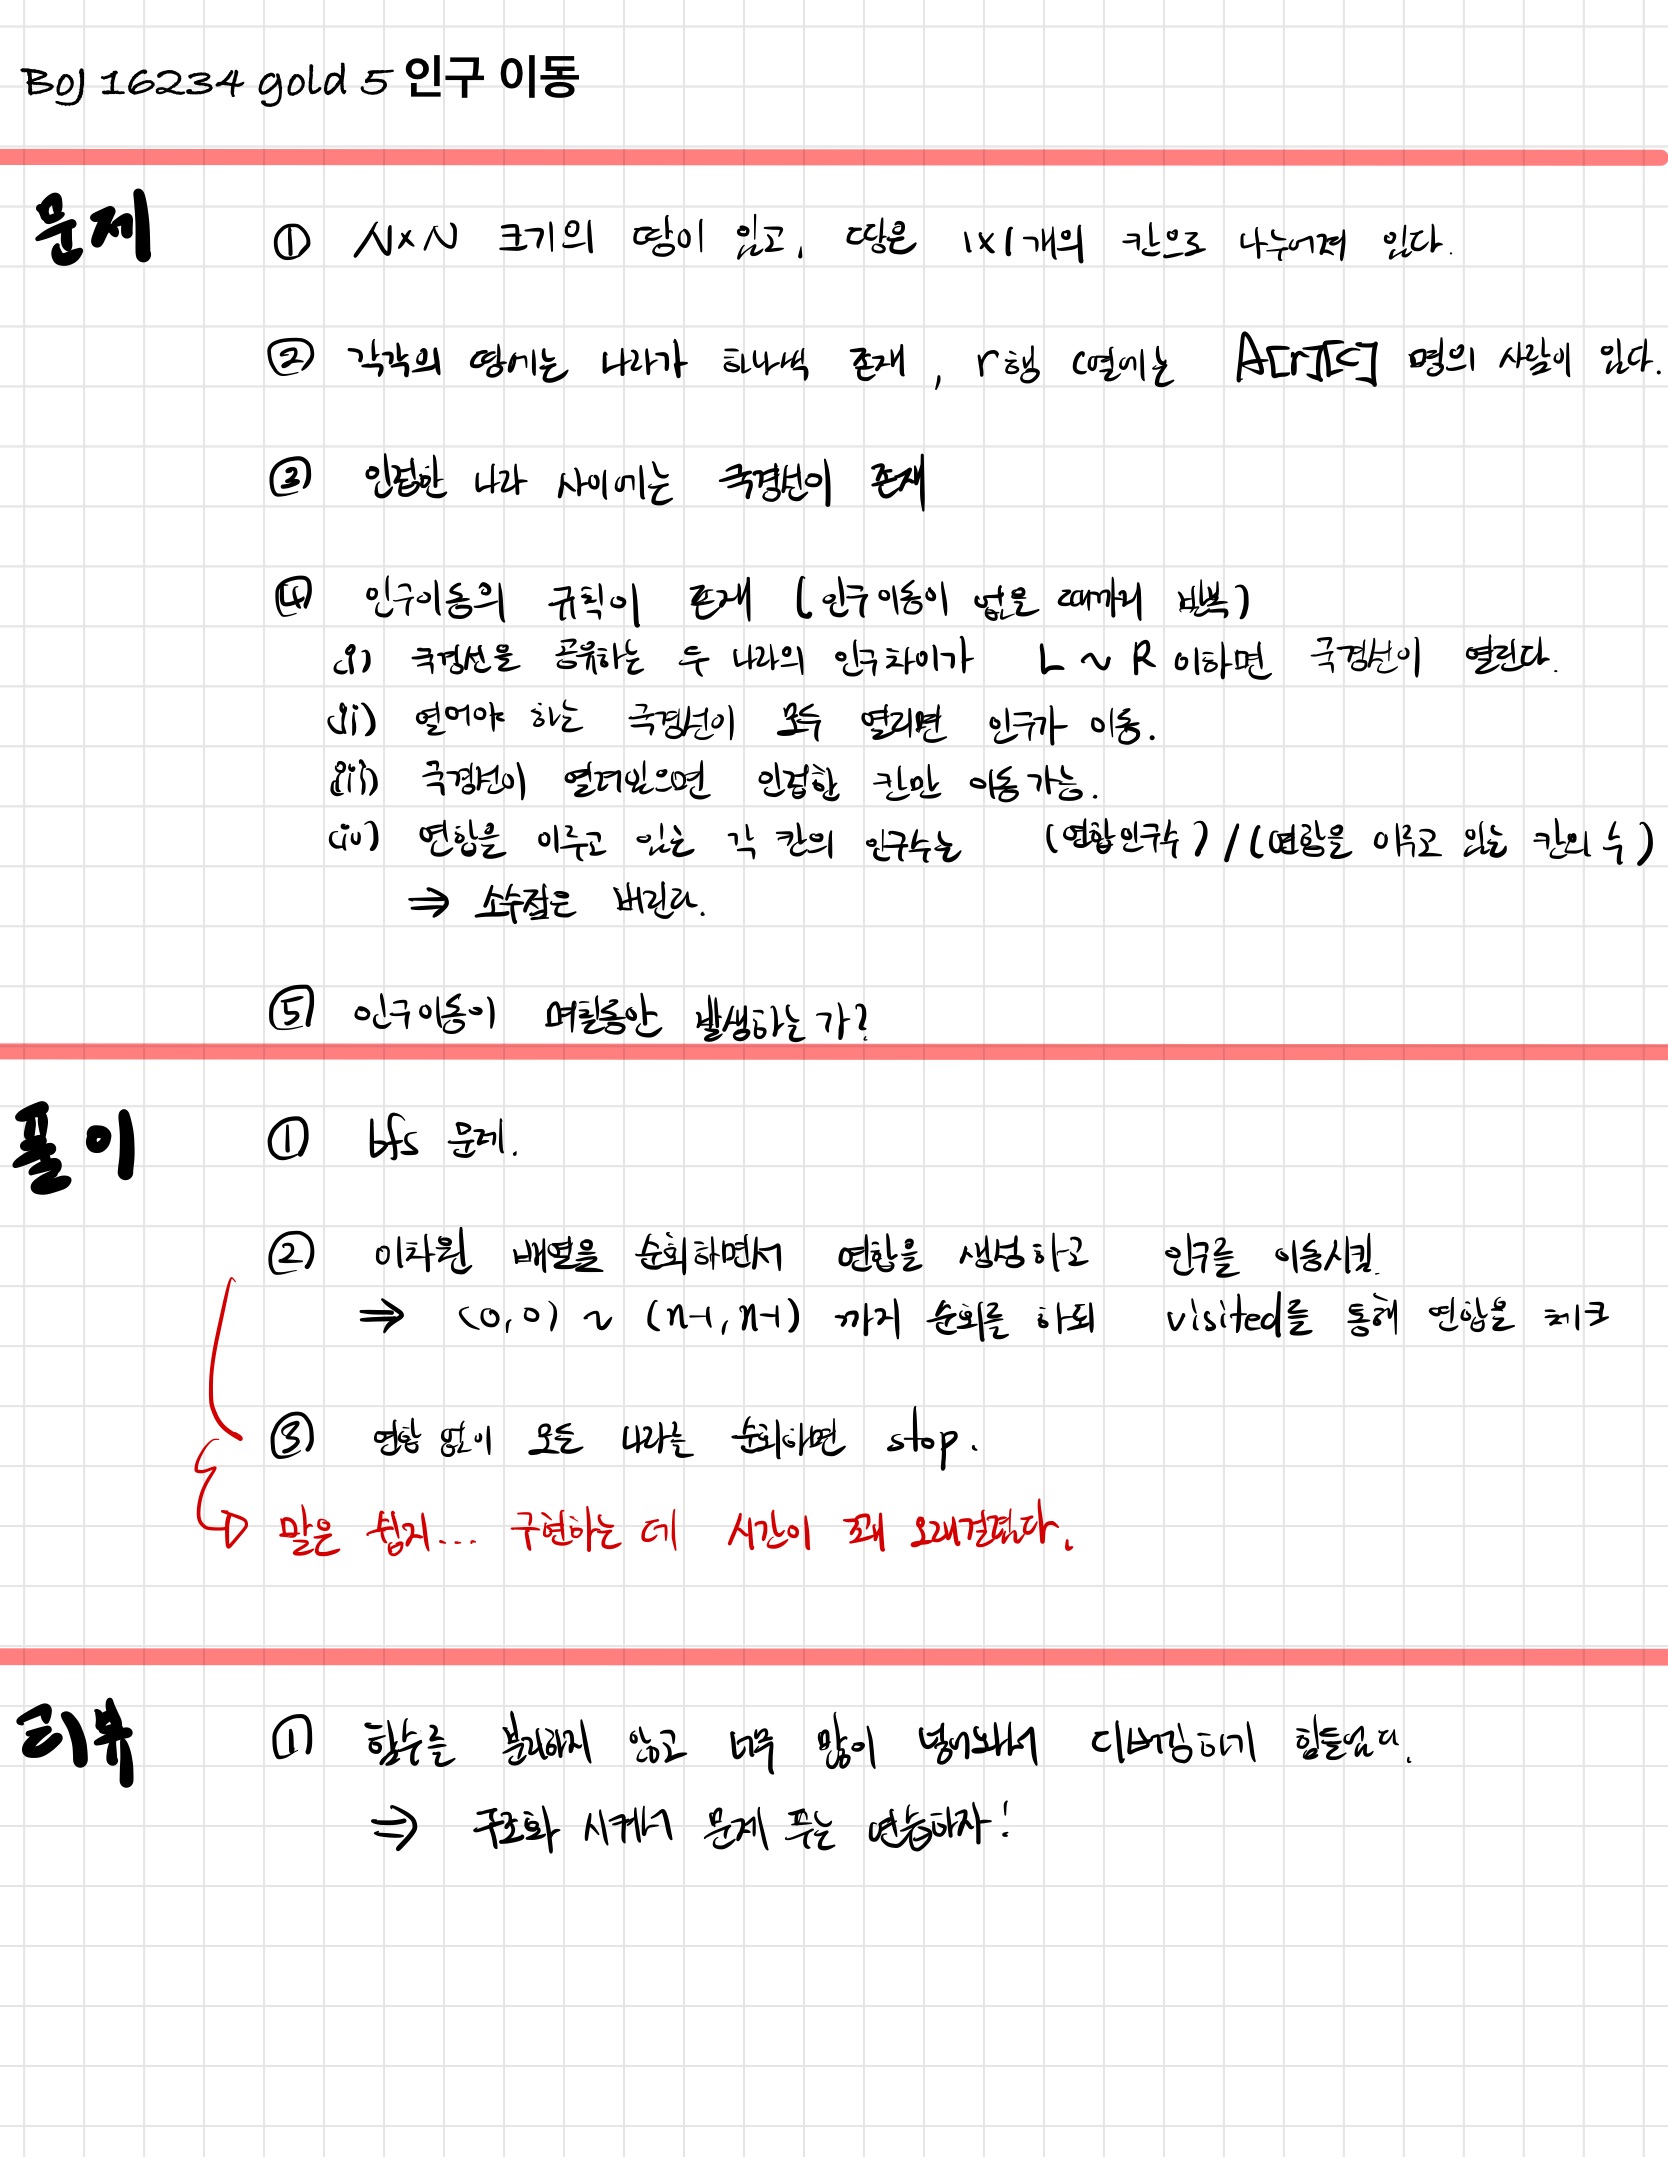 BOJ 16234 gold 5 인구 이동
문제
① N×N 크기의 땅이 있고, 땅은 1×1개의 칸으로 나누어져 있다.
② 각각의 땅에는 나라가 하나씩 존재, r행 c열에는 A[r][c] 명의 사람이 있다.
③ 인접한 나라 사이에는 국경선이 존재
④ 인구이동의 규칙이 존재 (인구이동이 없을 때까지 반복)
(i) 국경선을 공유하는 두 나라의 인구차이가 L ~ R 이하면 국경선이 열린다.
(ii) 열어야 하는 국경선이 모두 열리면 인구가 이동.
(iii) 국경선이 열려있으면 인접한 칸만 이동 가능.
(iv) 연합을 이루고 있는 각 칸의 인구수는 (연합인구수) / (연합을 이루고 있는 칸의 수)
⇒ 소수점은 버린다.
⑤ 인구이동이 며칠동안 발생하는 가?
풀이
① bfs 문제.
② 이차원 배열을 순회하면서 연합을 생성하고 인구를 이동시킴.
⇒ (0,0) ~ (n-1, n-1) 까지 순회를 하되 visited를 통해 연합을 체크
③ 연합 없이 모든 나라를 순회하면 stop.
말은 쉽지... 구현하는 데 시간이 꽤 오래걸렸다.
리뷰
① 함수를 분리하지 않고 너무 많이 넣어놔서 디버깅하기 힘들었다.
⇒ 구조화 시켜서 문제 푸는 연습하자!